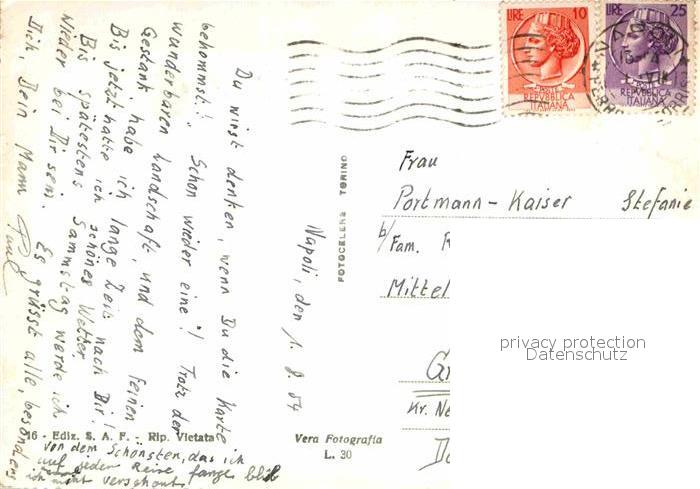 LIRE 10
POSTE
REPVBBLICA
ITALIANA
LIRE 25
REPVBBLICA
ITALIANA
Napoli, den 1. 8. 54
Du wirst denken, wenn Du die Karte
bekommst: "Schon wieder eine"! Trotz der
wunderbaren Landschaft, und dem feinen
Gestank, habe ich lange Zeit nach Dir!
Bis jetzt hatte ich schönes Wetter.
Bis spätestens Sammstag werde ich
wieder bei Dir sein. Es grüsst alle, besonders
Dich, Dein Mann Paul
von dem Schönsten, das ich
auf jeder Reise
ich nicht
16 - Ediz. S. A. F. - Rip. Vietata
Vera Fotografia
L. 30
FOTOCELERE TORINO
Frau
Portmann-Kaiser Stefanie
b/Fam. R
Mittel
G
Kr. Ne
D
privacy protection
Datenschutz